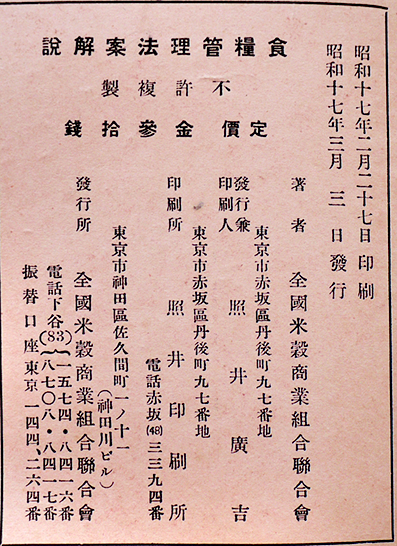 食糧管理法案解説
不許複製
定價金參拾錢
昭和十七年二月二十七日印刷
昭和十七年三月三日發行
著者 全國米穀商業組合聯合會
東京市赤坂區丹後町九七番地
發行兼印刷人 照井廣吉
東京市赤坂區丹後町九七番地
印刷所 照井印刷所
電話赤坂(48)三三九四番
東京市神田區佐久間町一ノ十一
(神田川ビル)
發行所 全國米穀商業組合聯合會
電話下谷(83){一五七四・八四一六番
八七〇八・八四一七番
振替口座東京一四四、二六四番